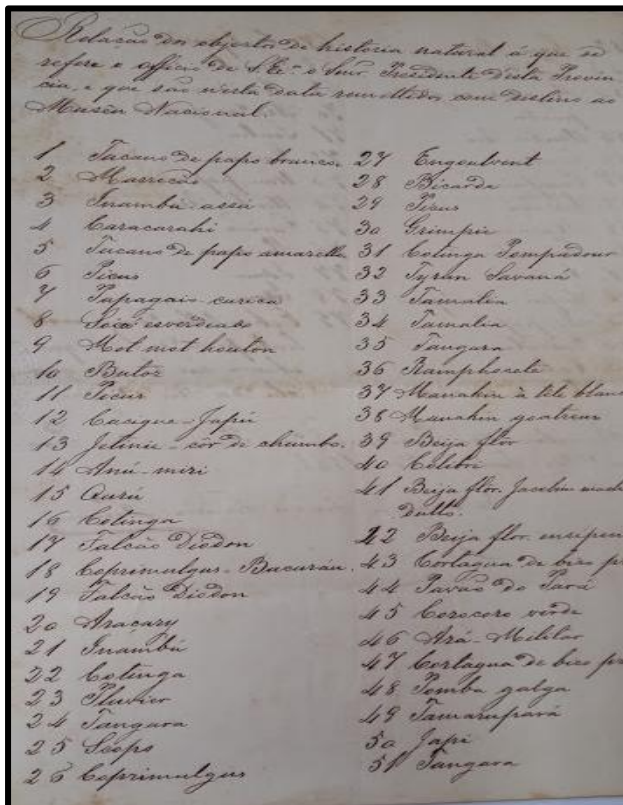 Relação dos objectos de historia natural á que se
refere o officio de S. Exª o Senr. Presidente desta Provin
cia, e que são nesta data remettidos com destino ao
Museu Nacional.
1 Tucano de papo branco.
2 Massicão
3 Inambú-assú
4 Caracarahi
5 Tucano de papo amarello
6 Picus
7 Papagaio-curica
8 Socó esverdeado
9 Mot mot houton
10 Butor
11 Picus
12 Cacique-Japú
13 côr de chumbo.
14 Anú-miri
15 Curú
16 Cotinga
17 Falcão Diodon
18 Coprimulgus-Bacuráu.
19 Falcão Diodon
20 Araçary
21 Inambú
22 Cotinga
23 Pluvier
24 Tangara
25 Scops
26 Coprimulgus
27 Engoulvent
28 Bicarde
29 Picus
30 Grimpie
31 Cotinga Pompadour
32 Tyran Savaná
33 Tamatia
34 Tamatia
35 Tangara
36 Ramphocele
37 Manakin à tete blan
38 Manakin
39 Beija flor
40 Colibri
41 Beija flor. Jacobin
42 Beija flor.
43 Cortagua de bico
44 Pavão do Pará
45 Corocoro verde
46 Ará-Militar
47 Cortagua de bico
48 Pomba galga
49 Tamarupará
50 Japi
51 Tangara